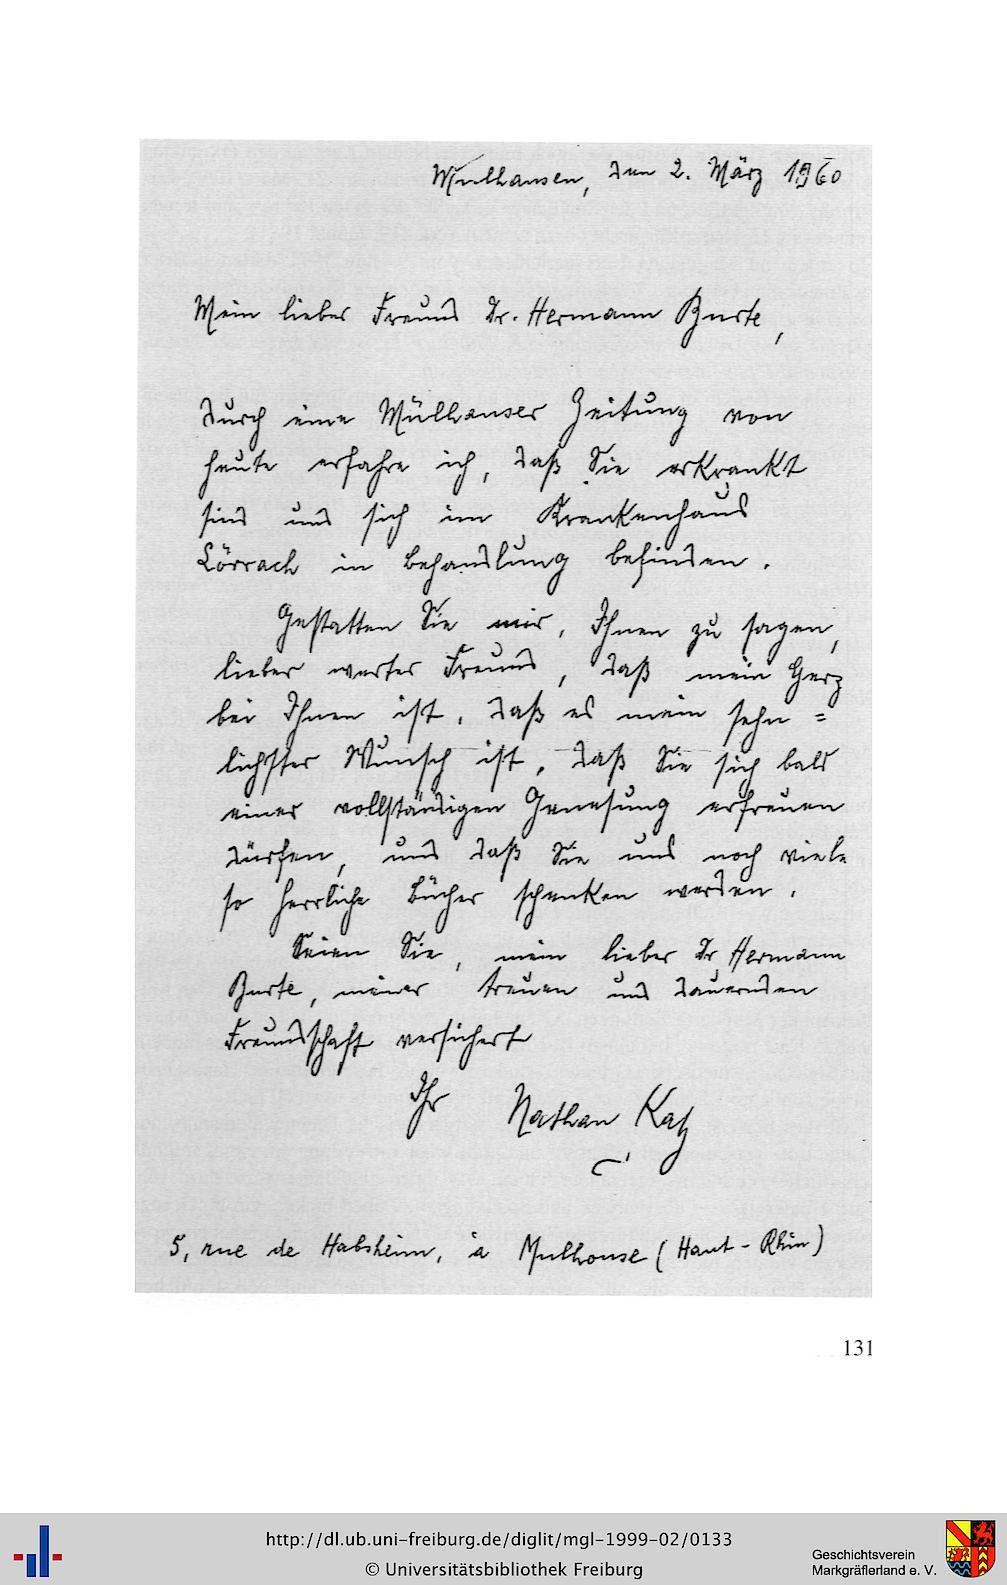 Mülhausen, den 2. März 1960
Mein lieber Freund Dr. Hermann Burte,
durch eine Mülhauser Zeitung von
heute erfahre ich, daß Sie erkrankt
sind und sich im Krankenhaus
Lörrach in Behandlung befinden.
Gestatten Sie mir, Ihnen zu sagen,
lieber werter Freund, daß mein Herz
bei Ihnen ist, daß es mein sehn=
lichster Wunsch ist, daß Sie sich bald
einer vollständigen Genesung erfreuen
dürfen, und daß Sie uns noch viele
so herrliche Bücher schenken werden.
Seien Sie, mein lieber Dr Hermann
Burte, meiner treuen und dauernden
Freundschaft versichert
Ihr Nathan Katz
5, rue de Habsheim, à Mulhouse (Haut-Rhin)
131
http://dl.ub.uni-freiburg.de/diglit/mgl-1999-02/0133
© Universitätsbibliothek Freiburg
Geschichtsverein
Markgräflerland e. V.